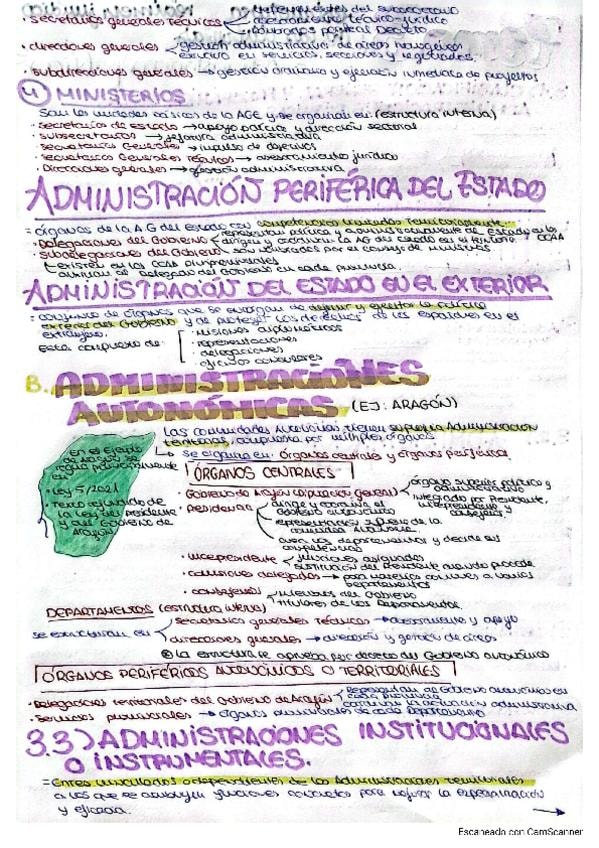 dependientes del subsecretario
· secretarios generales técnicos asesoramiento técnico-jurídico
· direcciones generales gestión administrativa de áreas homogéneas
en servicios, secciones y negociados.
· subdirecciones generales → gestión ordinaria y ejecución inmediata de proyectos
4) MINISTERIOS
Son las unidades básicas de la AGE y se organizan en: (estructura interna)
· secretaría de estado → apoyo parcial y dirección sectorial
· subsecretarios → jefatura administrativa
· secretarías Generales → impulso de
· secretarios Generales Técnicos → asesoramiento jurídico
· Direcciones generales → gestión administrativa
ADMINISTRACIÓN PERIFÉRICA DEL ESTADO
= órganos de la AG del estado con competencias limitadas territorialmente.
· Delegaciones del Gobierno representan política y administrativamente al estado en las CCAA
dirigen y coordinan la AG del estado en el territorio
son nombrados por el consejo de ministros
· Subdelegaciones del Gobierno
existen en las CCAA
al delegado del Gobierno en cada provincia.
ADMINISTRACIÓN DEL ESTADO EN EL EXTERIOR
= conjunto de órganos que se encargan de definir y ejecutar la política
exterior del Gobierno y de proteger los derechos de los españoles en el
extranjero.
Está compuesto de · misiones diplomáticas
· representaciones
· delegaciones
· oficinas consulares
B. ADMINISTRACIONES
AUTONÓMICAS (EJ: ARAGÓN)
Las comunidades Autónomas tienen su propia Administración
territorial, compuesta por múltiples órganos
↳ se organiza en: órganos centrales y órganos periféricos
en el Ejemplo
de Aragón se
regula principalmente
en:
· Ley 5/2021
· Texto refundido de
la Ley del Presidente
y del Gobierno de
Aragón
ÓRGANOS CENTRALES
· Gobierno de Aragón (Diputación general) órgano superior político y
administrativo
integrado por Presidente,
vicepresidente y
consejeros.
· Presidencia dirige y coordina el
Gobierno autonómico
representación suprema de la
comunidad Autónoma
crea los departamentos y decide sus
competencias
· vicepresidente funciones asignadas
sustitución del Presidente cuando procede
· comisiones delegadas → para materias comunes a varios
departamentos
· consejeros miembros del Gobierno
titulares de los Departamentos.
DEPARTAMENTOS (estructura interna)
se estructuran en secretarías generales técnicas → asesoramiento y apoyo
direcciones generales → dirección y gestión de áreas
La estructura se aprueba por decreto del Gobierno autonómico
ÓRGANOS PERIFÉRICOS AUTONÓMICOS O TERRITORIALES
· Delegaciones territoriales del Gobierno de Aragón Representan al Gobierno autonómico en
cada provincia
coordinan la actuación administrativa
· Servicios provinciales → órganos provinciales de cada Departamento
3.3) ADMINISTRACIONES INSTITUCIONALES
O INSTRUMENTALES.
= Entes vinculados o dependientes de las Administraciones territoriales
a los que se atribuyen funciones concretas para mejorar la especialización
y eficacia.
Escaneado con CamScanner